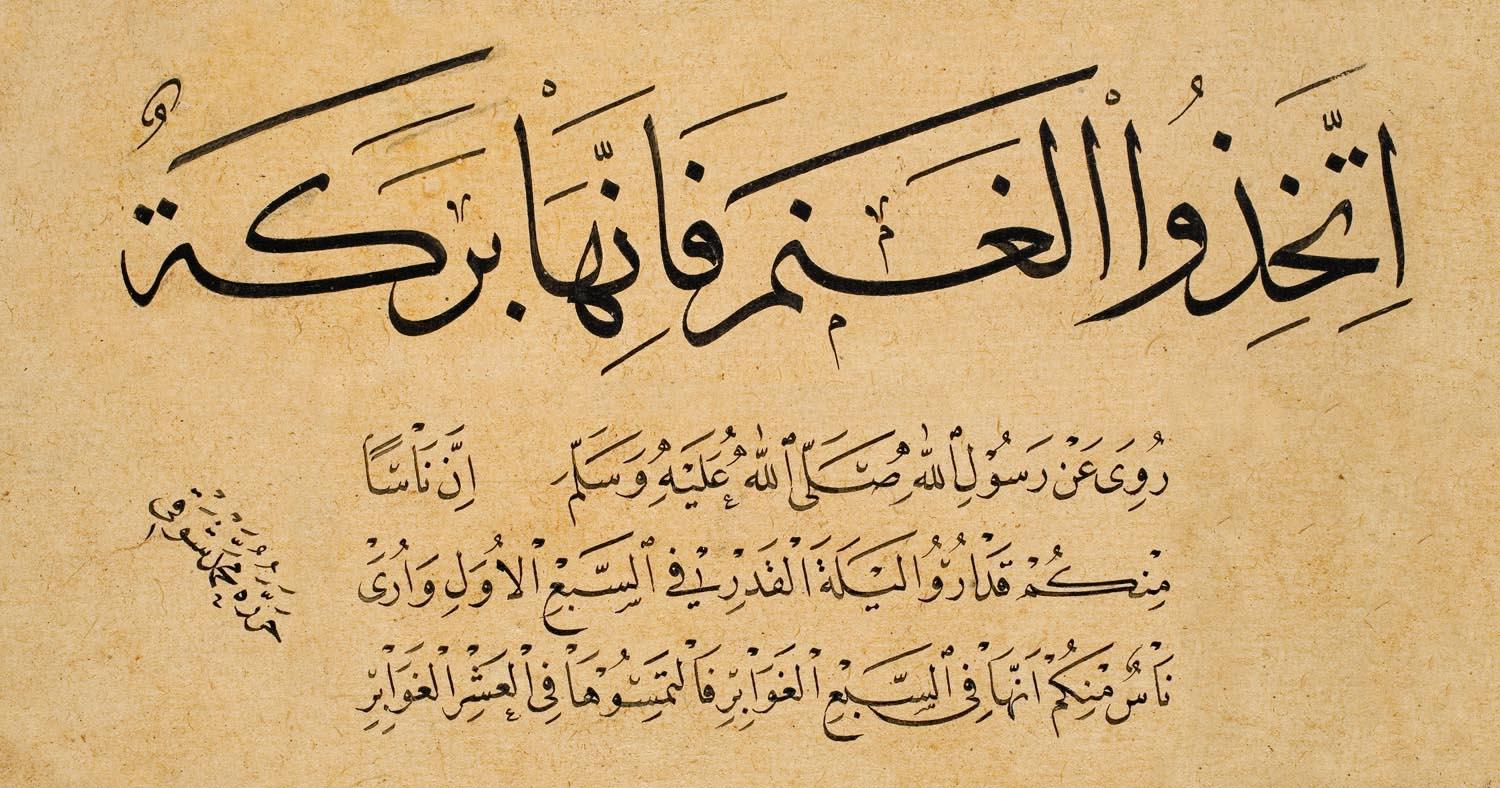 اِتَّخِذُوا الْغَنَمَ فَاِنَّهَا بَرَكَةٌ
رُوِىَ عَنْ رَسُوْلِ اللهِ صَلَّى اللهُ عَلَيْهِ وَسَلَّمَ اِنَّ نَاْسًا
مِنْكُمْ قَدْ اُرُوْا لَيْلَةَ الْقَدْرِ فِي السَّبْعِ الْاُوَلِ وَاُرِىَ
نَاْسٌ مِنْكُمْ اَنَّهَا فِى السَّبْعِ الْغَوَابِرِ فَالْتَمِسُوْهَا فِى الْعَشْرِ الْغَوَابِرِ
حرره محمد شوقى